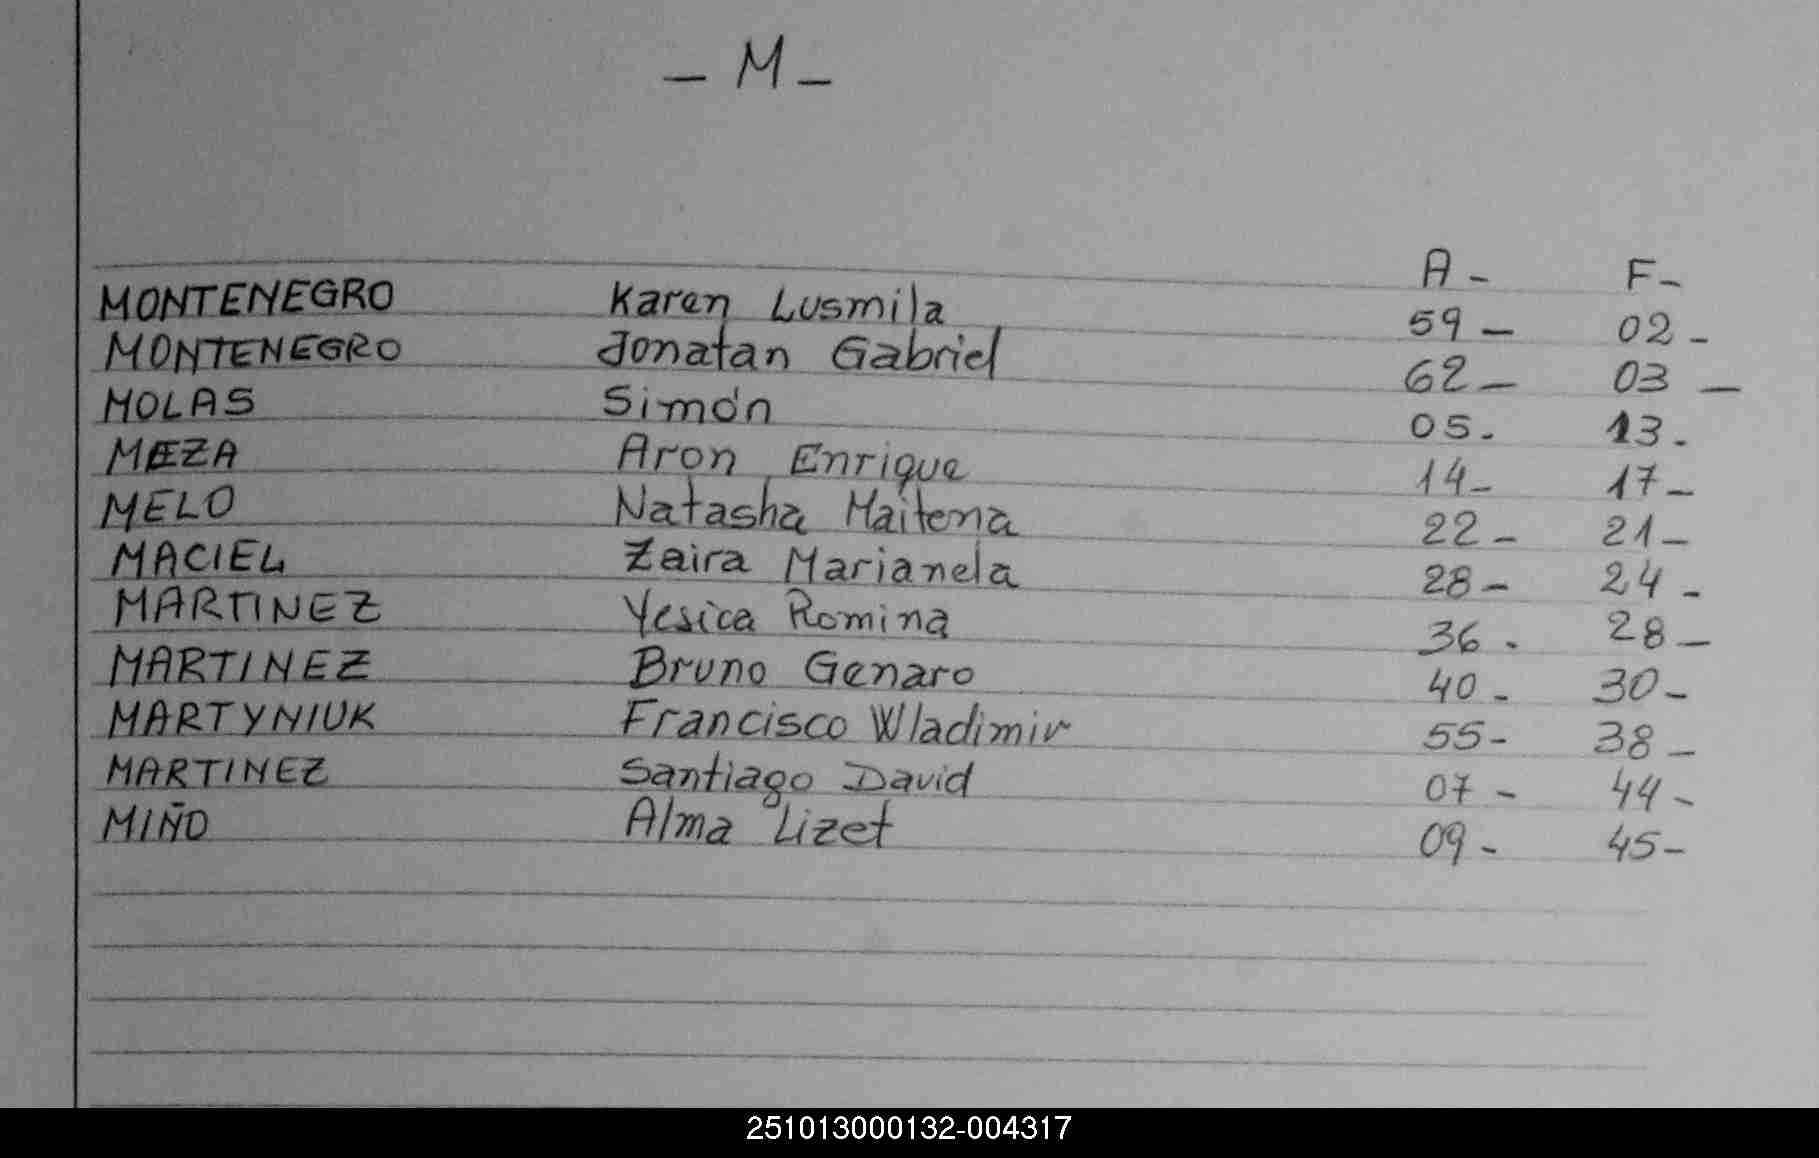 - M -
A - F -
MONTENEGRO Karen Lusmila 59 - 02 -
MONTENEGRO Jonatan Gabriel 62 - 03 -
MOLAS Simón 05 - 13 -
MEZA Aron Enrique 14 - 17 -
MELO Natasha Maitena 22 - 21 -
MACIEL Zaira Marianela 28 - 24 -
MARTINEZ Yesica Romina 36 - 28 -
MARTINEZ Bruno Genaro 40 - 30 -
MARTYNIUK Francisco Wladimir 55 - 38 -
MARTINEZ Santiago David 07 - 44 -
MIÑO Alma Lizet 09 - 45 -
251013000132-004317